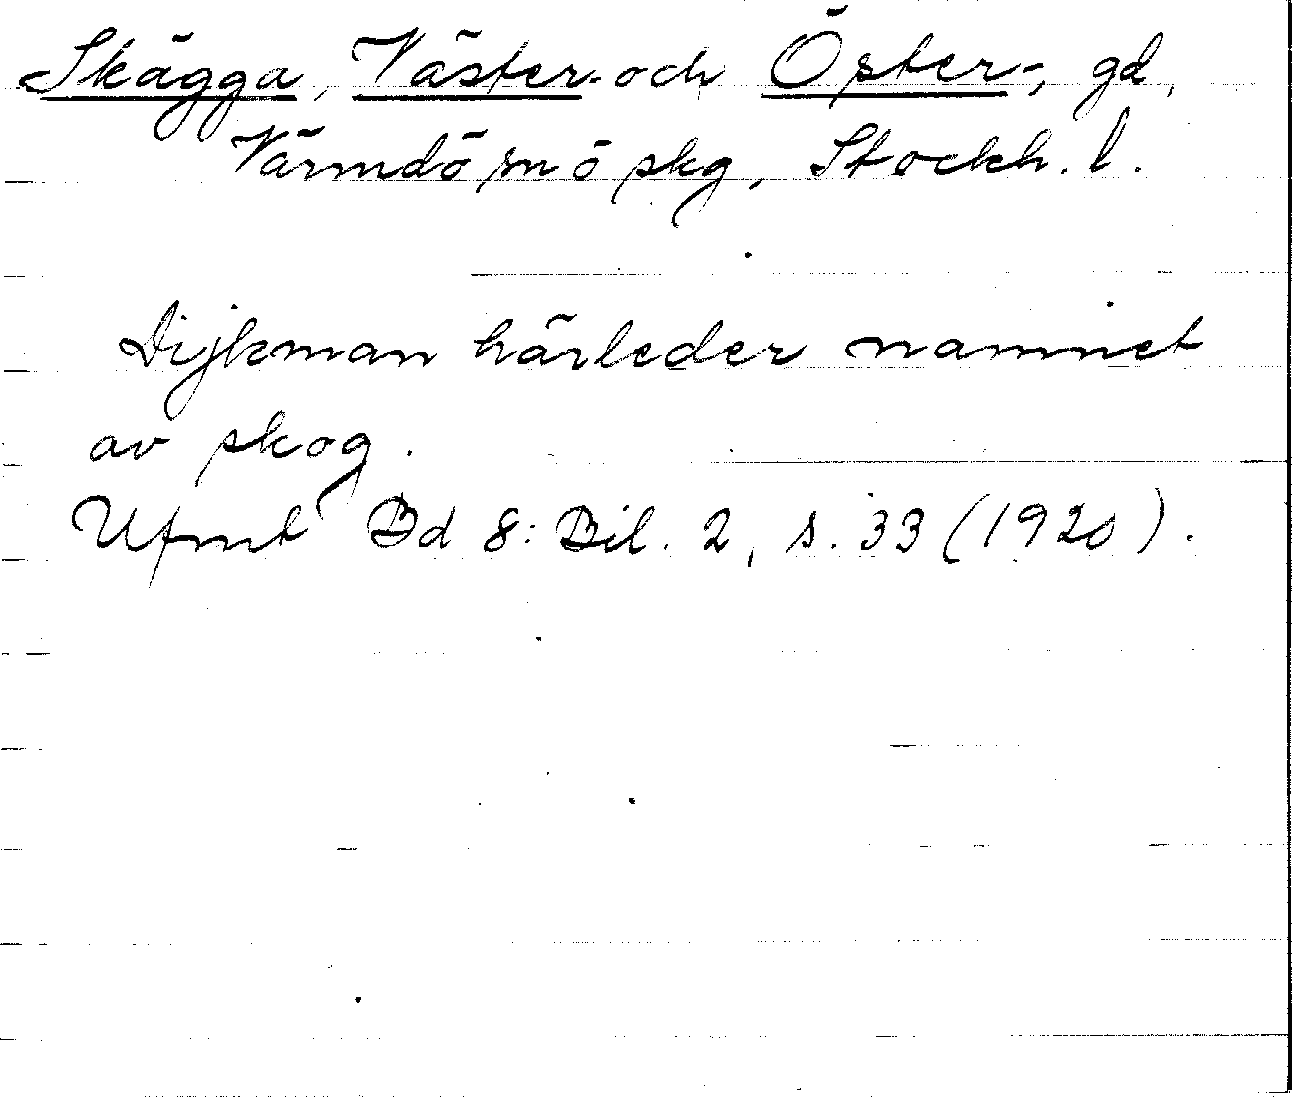 Skägga, Väster- och Öster-, gd,
Värmdö sn ö skg, Stockh. l.
Dijkman härleder namnet
av skog.
Ufmt Bd 8: Bil. 2, s. 33 (1920).